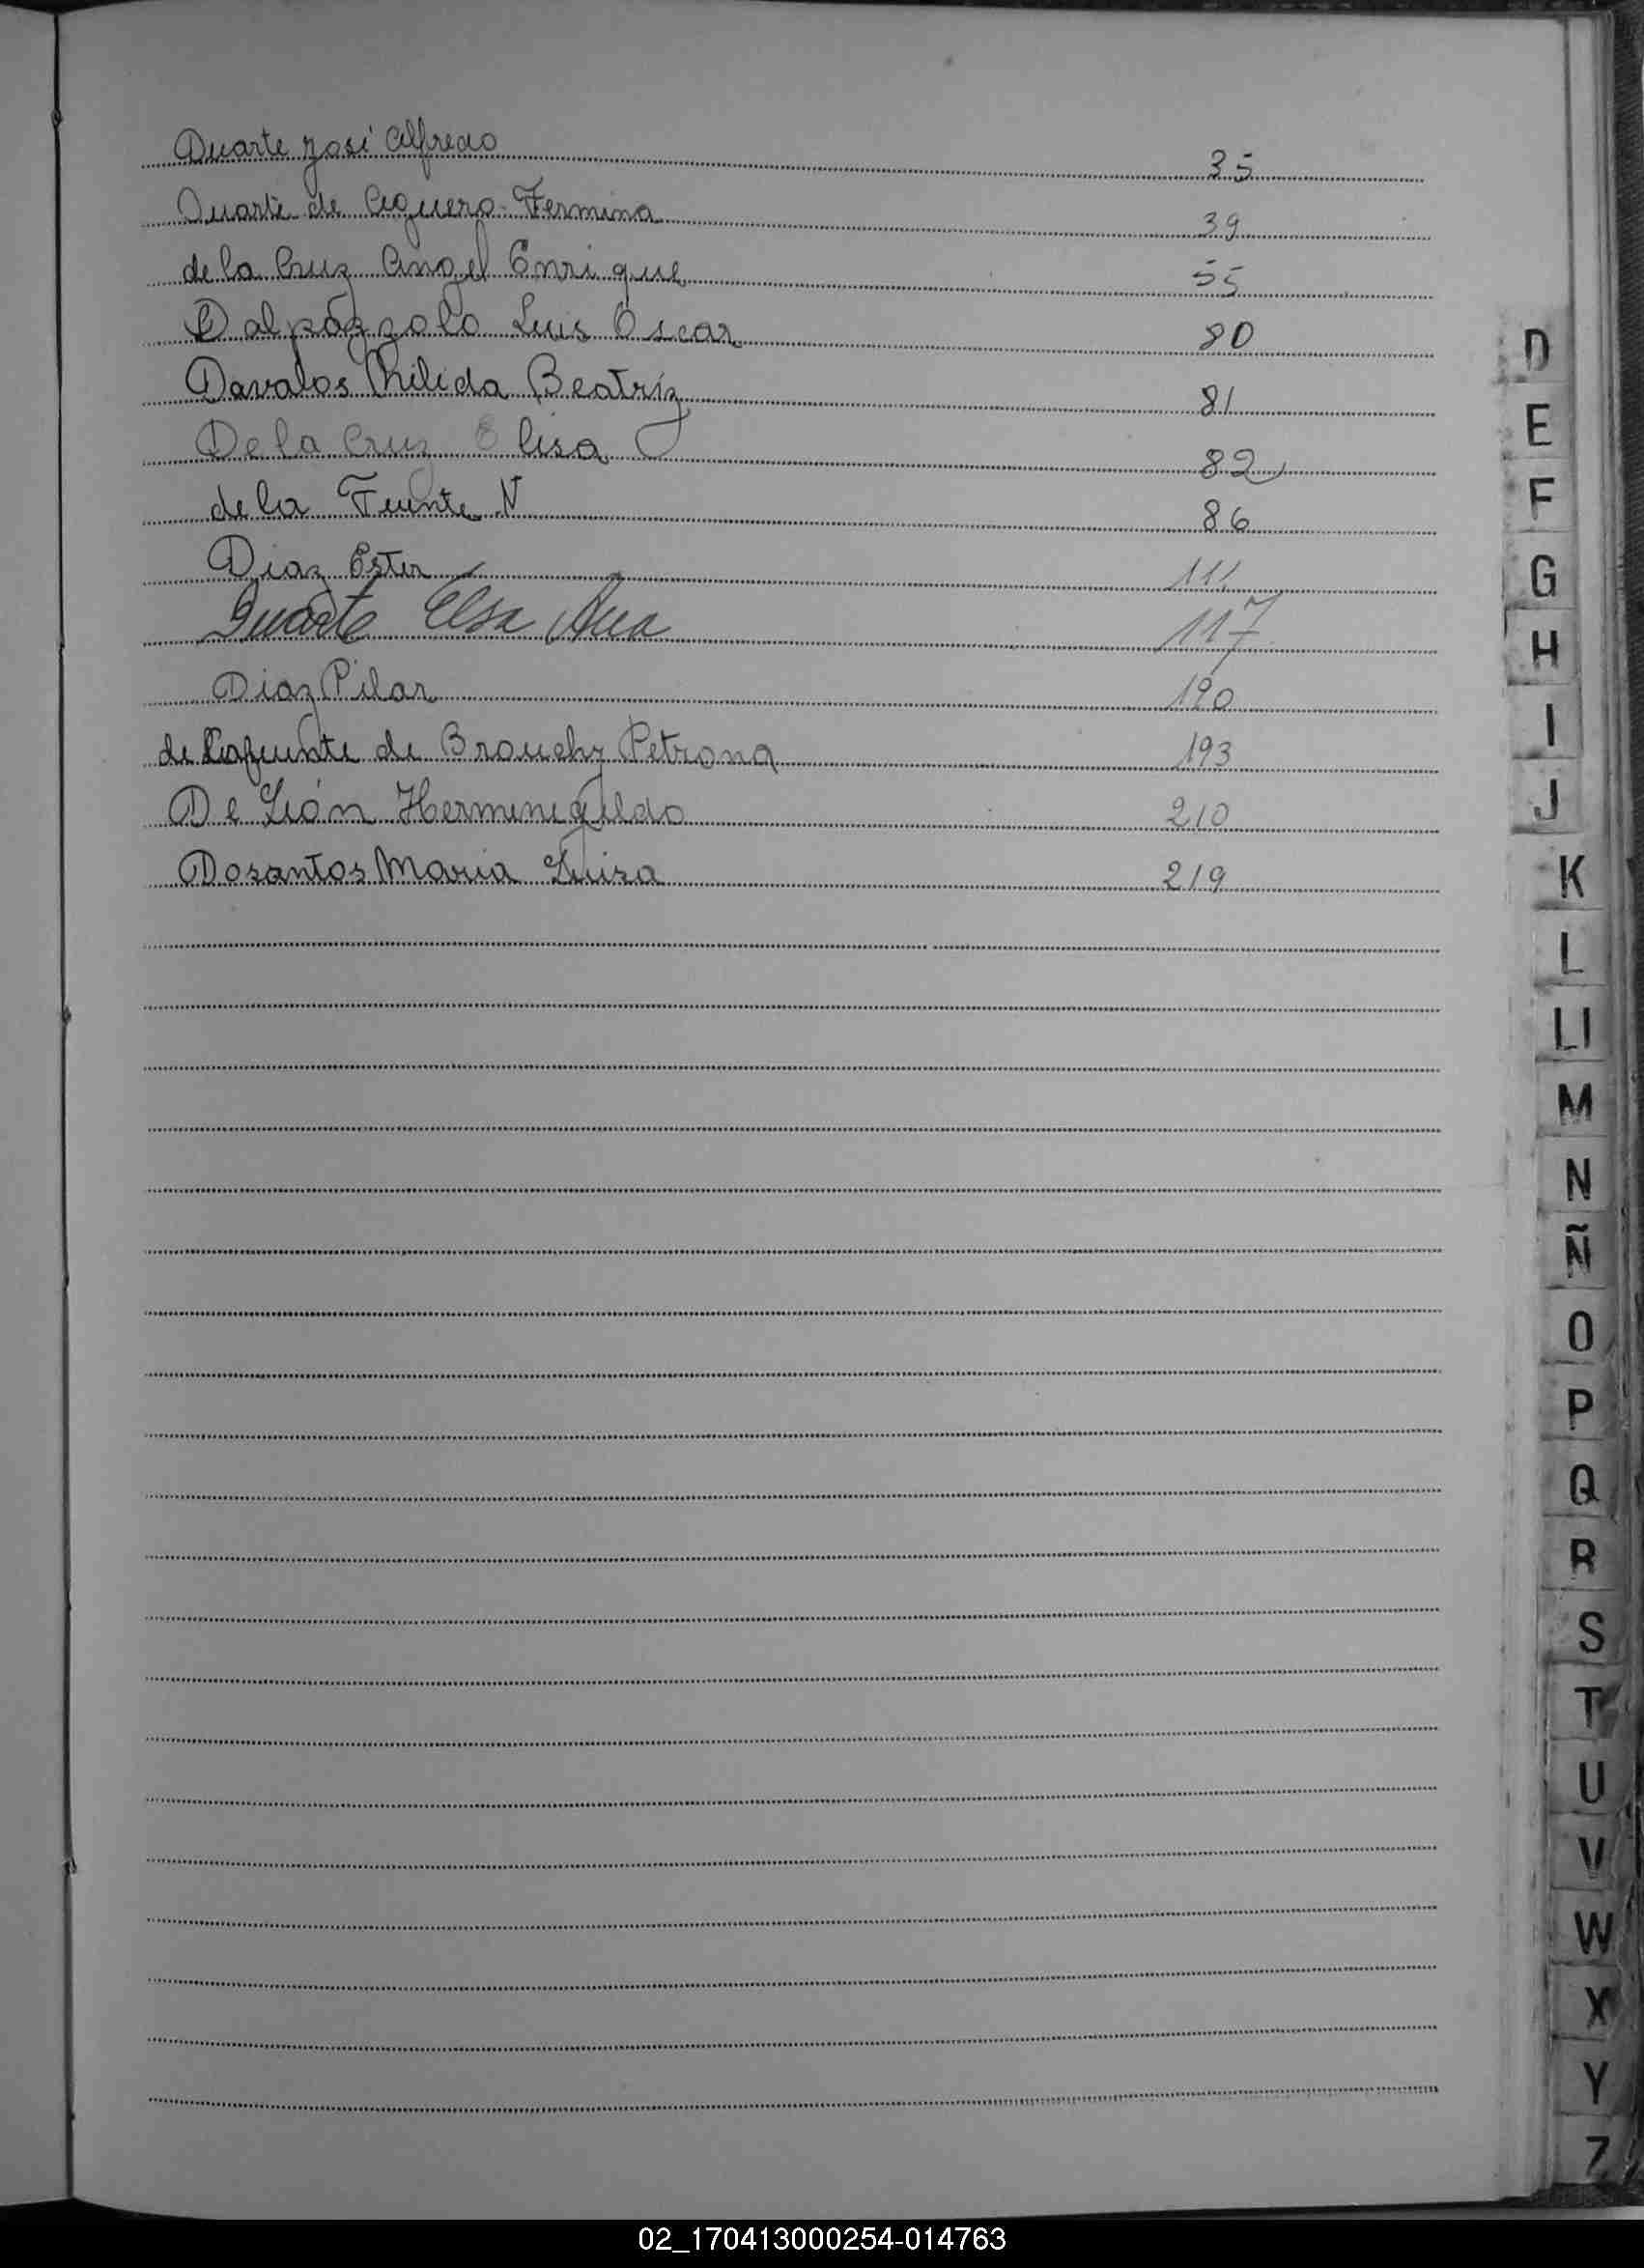 Duarte José Alfredo 35
Duarte de Aguero Fermina 39
de la Cruz Angel Enrique 55
Dalpózzolo Luis Oscar 80
Davalos Milida Beatríz 81
De la Cruz Elisa 82
de la Fuente N 86
Diaz Ester 111
Duarte Elsa Ana 117
Diaz Pilar 190
de Lafuente de Brouchy Petrona 193
De León Hermenegildo 210
Dosantos Maria Luisa 219
D
E
F
G
H
I
J
K
L
Ll
M
N
Ñ
O
P
Q
R
S
T
U
V
W
X
Y
Z
02_170413000254-014763